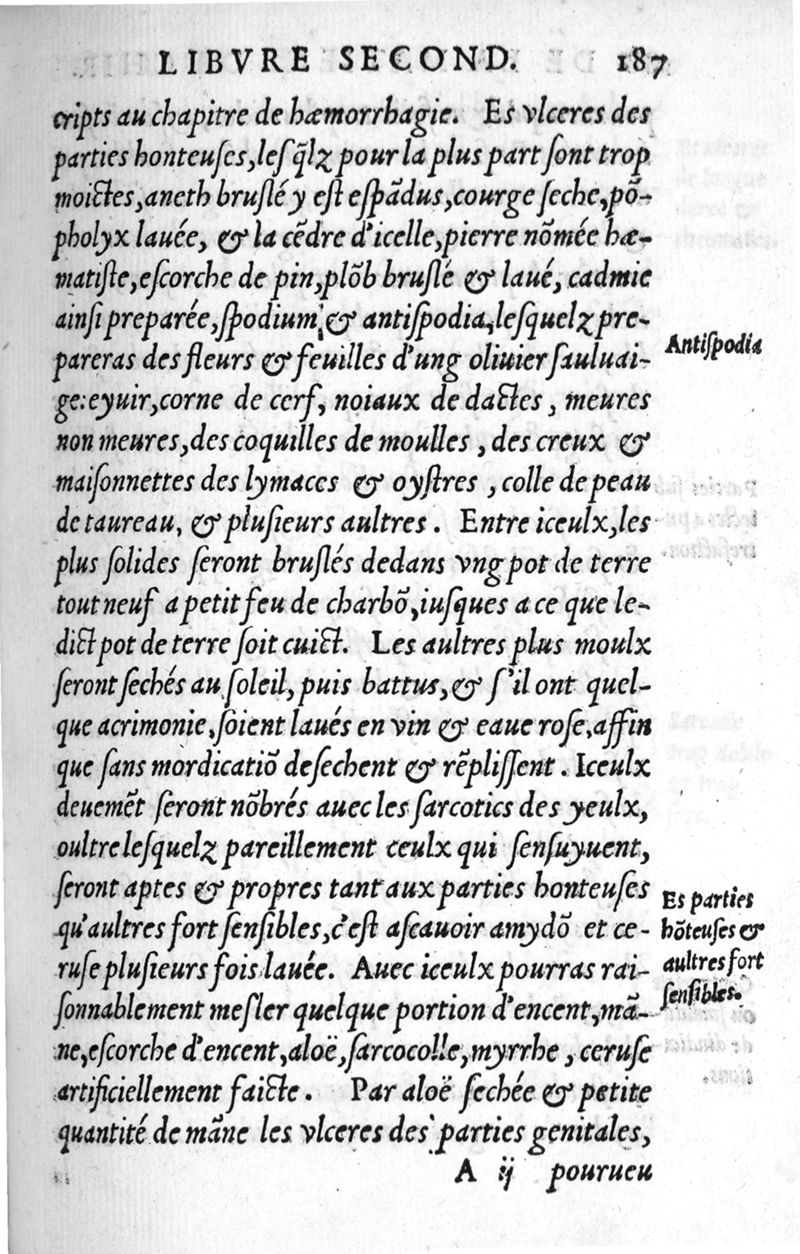 LIBVRE SECOND. 187
cripts au chapitre de hæmorrhagie. Es vlceres des
parties honteuſes,leſq̃lz pour la plus part ſont trop
moictes,aneth bruſlé y eſt eſpãdus,courge ſeche,põ-
pholyx lauée, & la cẽdre d'icelle,pierre nõmée hæ-
matiſte,eſcorche de pin,plõb bruſlé & laué, cadmie
ainſi preparée,ſpodium,& antiſpodia,leſquelz pre-
pareras des fleurs & feuilles d'ung oliuier ſauluai-
Antiſpodia
ge:eyuir,corne de cerf, noiaux de dactes, meures
non meures,des coquilles de moulles , des creux &
maiſonnettes des lymaces & oyſtres , colle de peau
de taureau, & pluſieurs aultres. Entre iceulx,les
plus ſolides ſeront bruſlés dedans vng pot de terre
tout neuf a petit feu de charbõ,iuſques a ce que le-
dict pot de terre ſoit cuict. Les aultres plus moulx
ſeront ſechés au ſoleil, puis battus,& ſ'il ont quel-
que acrimonie,ſoient laués en vin & eaue roſe,affin
que ſans mordicatiõ deſechent & rẽpliſſent. Iceulx
deuemẽt ſeront nõbrés auec les ſarcotics des yeulx,
oultre leſquelz pareillement ceulx qui ſenſuyuent,
ſeront aptes & propres tant aux parties honteuſes
qu'aultres fort ſenſibles,c'eſt aſcauoir amydõ et ce-
ruſe pluſieurs fois lauée. Auec iceulx pourras rai-
Es parties
hõteuſes &
aultres fort
ſenſibles.
ſonnablement meſler quelque portion d'encent,mã-
ne,eſcorche d'encent,aloë,ſarcocolle,myrrhe, ceruſe
artificiellement faicte. Par aloë ſechée & petite
quantité de mãne les vlceres des parties genitales,
A ij pourueu